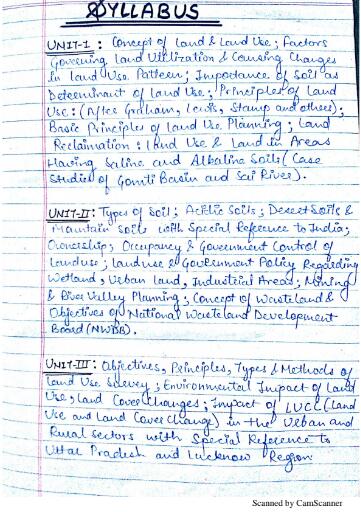 SYLLABUS
UNIT-I : Concept of Land & Land Use ; Factors
Governing Land Utilization & Causing Changes
in Land Use Pattern ; Importance of Soil as
Determinant of Land Use ; Principles of Land
Use : (After Graham, Lewis, Stamp and others) ;
Basic Principles of Land Use Planning ; Land
Reclamation : Land Use & Land in Areas
Having Saline and Alkaline Soils (Case
Studies of Gomti Basin and Sai River).
UNIT-II : Types of Soil ; Acidic Soils ; Desert Soils &
Mountain Soils with Special Reference to India ;
Ownership ; Occupancy & Government Control of
Landuse ; Landuse & Government Policy Regarding
Wetland, Urban Land, Industrial Areas ; Mining
& River Valley Planning ; Concept of Wasteland &
Objectives of National Wasteland Development
Board (NWDB).
UNIT-III : Objectives, Principles, Types & Methods of
Land Use Survey ; Environmental Impact of Land
Use, Land Cover Changes ; Impact of LUCC (Land
Use and Land Cover Change) in the Urban and
Rural Sectors with Special Reference to
Uttar Pradesh and Lucknow Region
Scanned by CamScanner